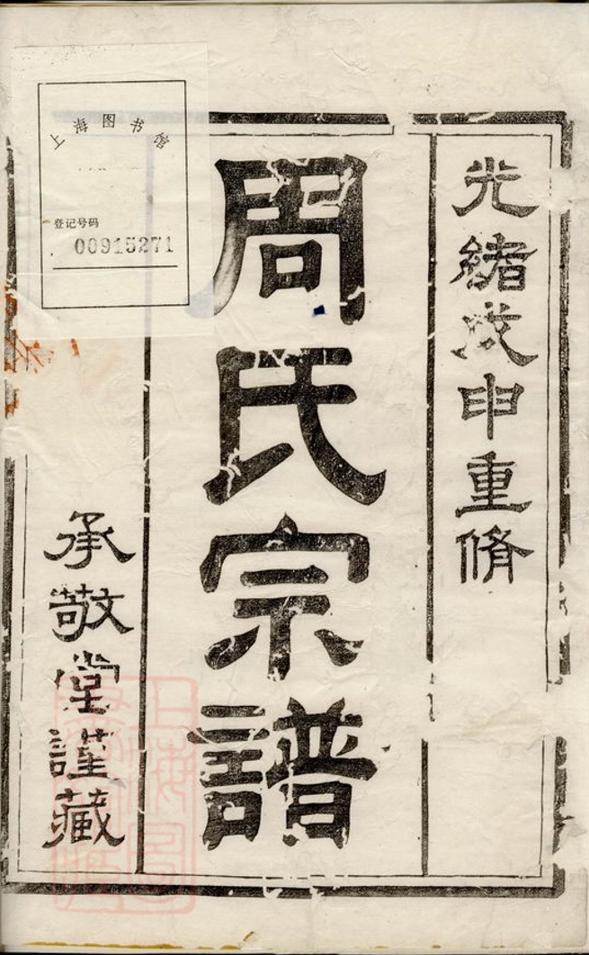 光緒戊申重脩
周氏宗譜
承敬堂謹藏
上海图书馆
登记号码
00915271